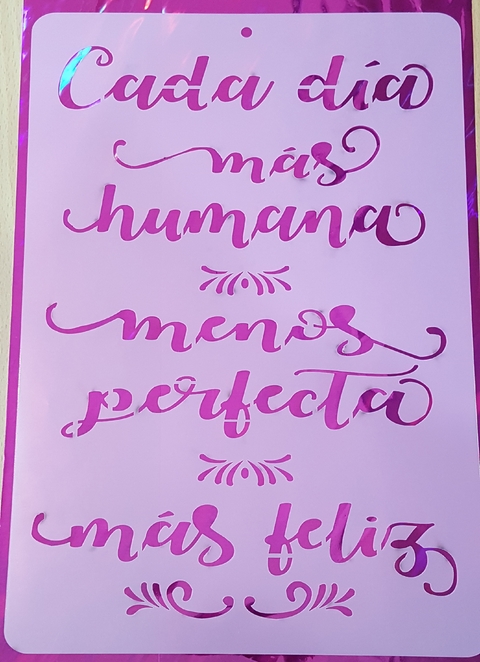 Cada día
más
humana
menos
perfecta
más feliz